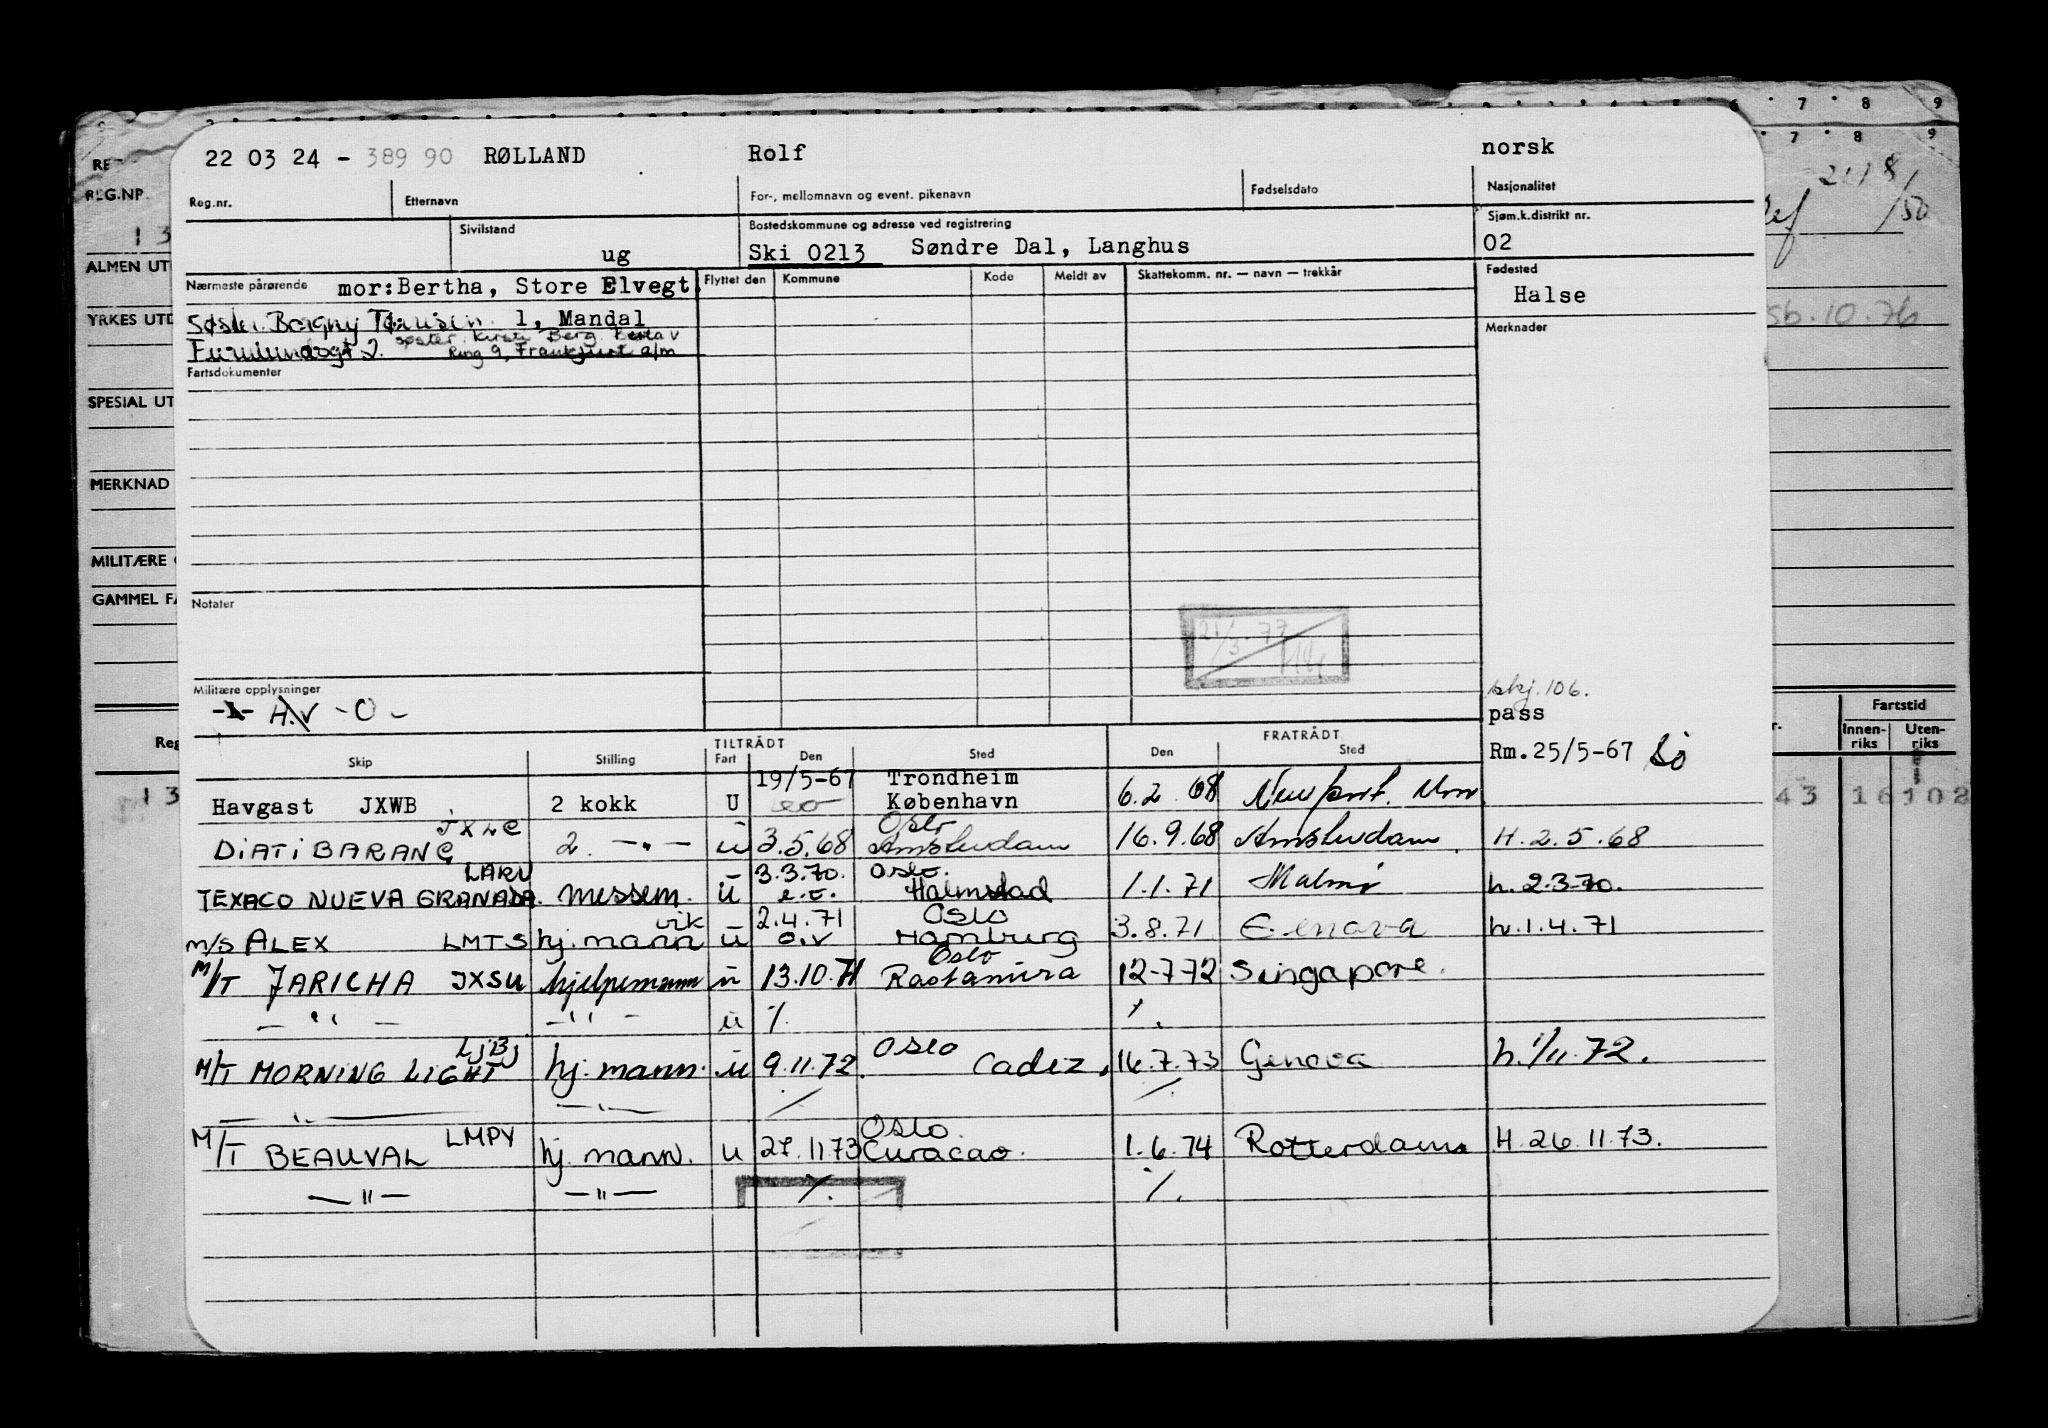 7 8 9
7 8 9
22 03 24 - 389 90 RØLLAND Rolf norsk
REG.NR.
Reg.nr. Etternavn For-, mellomnavn og event. pikenavn Fødselsdato Nasjonalitet
Sivilstand Bostedskommune og adresse ved registrering Sjøm.k.distrikt nr.
ug Ski 0213 Søndre Dal, Langhus 02
ALMEN UT
Nærmeste pårørende mor: Bertha, Store Elvegt. Flyttet den Kommune Kode Meldt av Skattekomm. nr. — navn — trekkår Fødested
Halse
YRKES UTD
Søster Borgny 1, Mandal Merknader
10.76
søster Kirsti Berg
Ring 9, Frankfurt a/m
Fartsdokumenter
SPESIAL UT
MERKNAD
MILITÆRE
GAMMEL FA
Notater
21/3.77
Militære opplysninger
H.V - O -
skj. 106.
pass
Rm. 25/5-67
TILTRÅDT FRATRÅDT Fartstid
Skip Stilling Fart Den Sted Den Sted Innen-riks Uten-riks
19/5-67 Trondheim
Havgast JXWB 2 kokk U København 6.2.68 Newport. Mon
43 16 102
JXLC Oslo
DIATIBARANG 2. —"— u 3.5.68 Amsterdam 16.9.68 Amsterdam. H. 2.5.68
LARU 3.3.70. Oslo.
TEXACO NUEVA GRANADA. messem. u e.o. Halmstad 1.1.71 Malmö h. 2.3.70.
vik 2.4.71 Oslo
M/S ALEX LMTS hj. mann u o.v Hamburg 3.8.71 Genova h. 1.4.71
Oslo
M/T JARICHA JXSU hjelpemann u 13.10.71 Rastanura 12-7-72 Singapore.
— " — — " — u %. %.
LJBJ Oslo
M/T MORNING LIGHT hj. mann. u 9.11.72. Cadiz. 16.7.73 Genova h. 1/11.72.
— " — — " — ./. ./.
LMPY Oslo.
M/T BEAUVAL hj. mann. u 27.11.73 Curacao. 1.6.74 Rotterdam H. 26.11.73.
— " — — " — %. %.